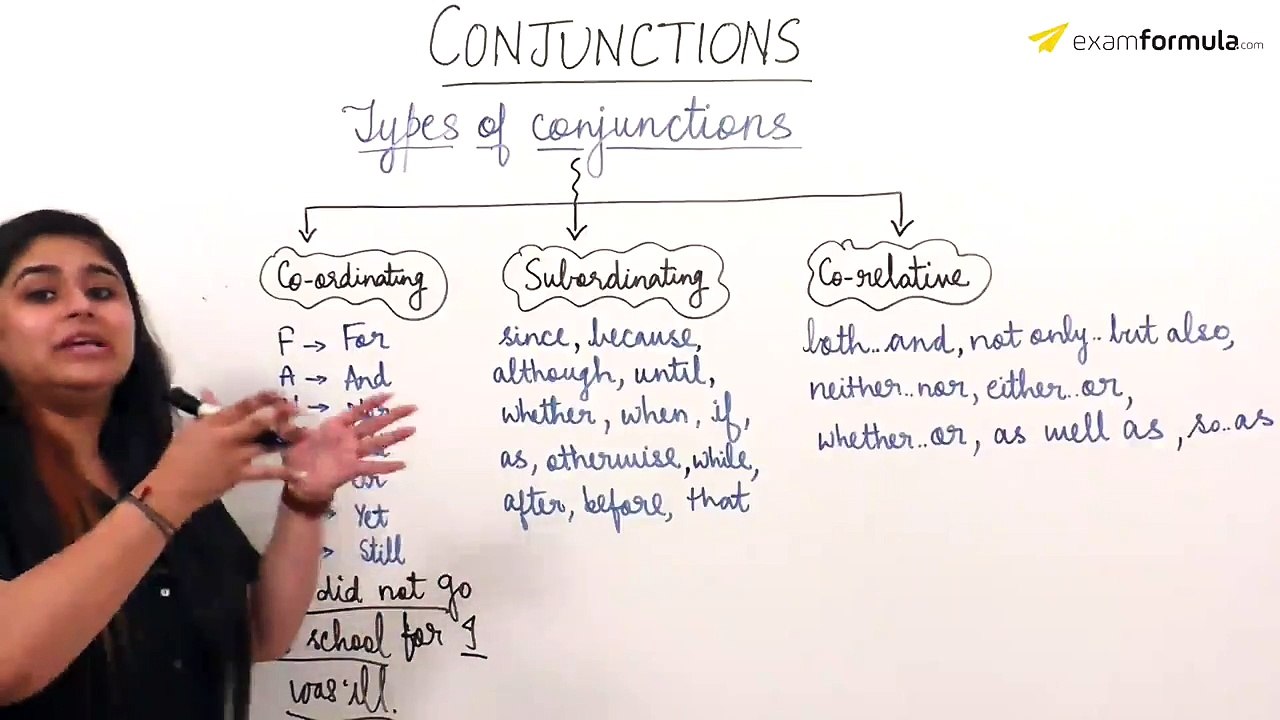 CONJUNCTIONS
examformula.com
Types of conjunctions
Co-ordinating
Subordinating
Co-relative
F → For
A → And
Yet
Still
did not go
school for I
was ill.
since, because,
although, until,
whether, when, if,
as, otherwise, while,
after, before, that
both..and, not only..but also,
neither..nor, either..or,
whether..or, as well as, so..as